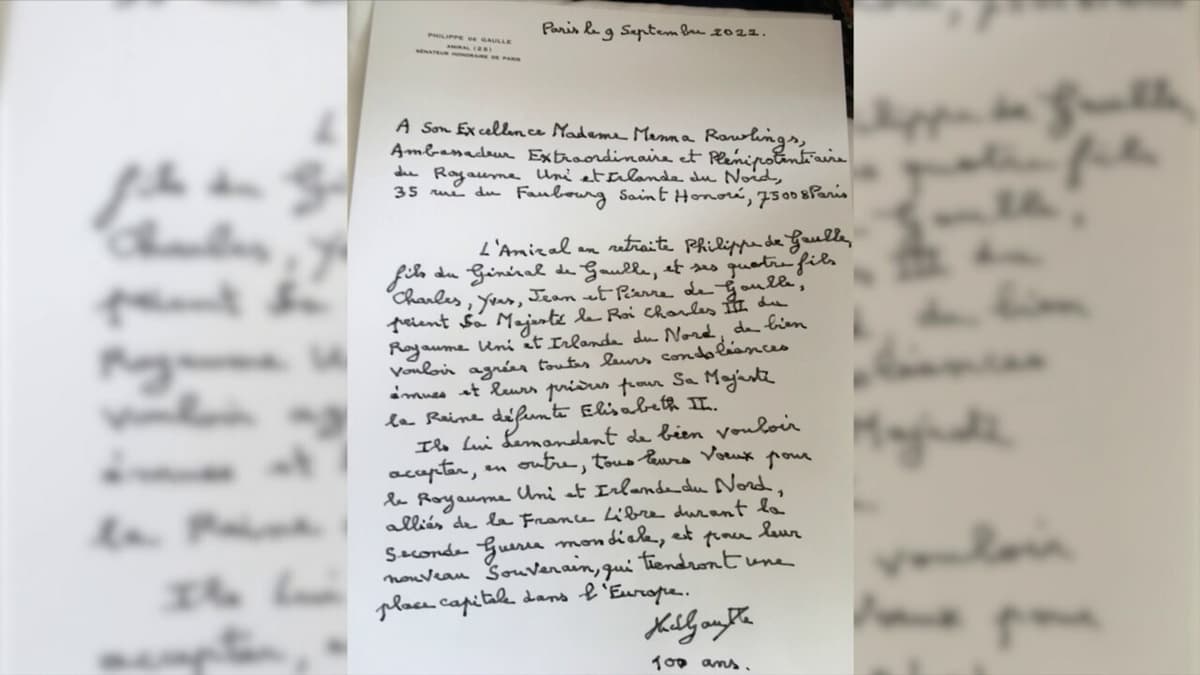 PHILIPPE DE GAULLE
AMIRAL (2S)
SÉNATEUR HONORAIRE DE PARIS
Paris le 9 Septembre 2022.
A Son Excellence Madame Menna Rawlings,
Ambassadeur Extraordinaire et Plénipotentiaire
du Royaume Uni et Irlande du Nord,
35 rue du Faubourg Saint Honoré, 75008 Paris
L'Amiral en retraite Philippe de Gaulle,
fils du Général de Gaulle, et ses quatre fils
Charles, Yves, Jean et Pierre de Gaulle,
prient Sa Majesté le Roi Charles III du
Royaume Uni et Irlande du Nord, de bien
vouloir agréer toutes leurs condoléances
émues et leurs prières pour Sa Majesté
la Reine défunte Elisabeth II.
Ils Lui demandent de bien vouloir
accepter, en outre, tous leurs Voeux pour
le Royaume Uni et Irlande du Nord,
alliés de la France Libre durant la
Seconde Guerre mondiale, et pour leur
nouveau Souverain, qui tiendront une
place capitale dans l'Europe.
Ph de Gaulle
100 ans.